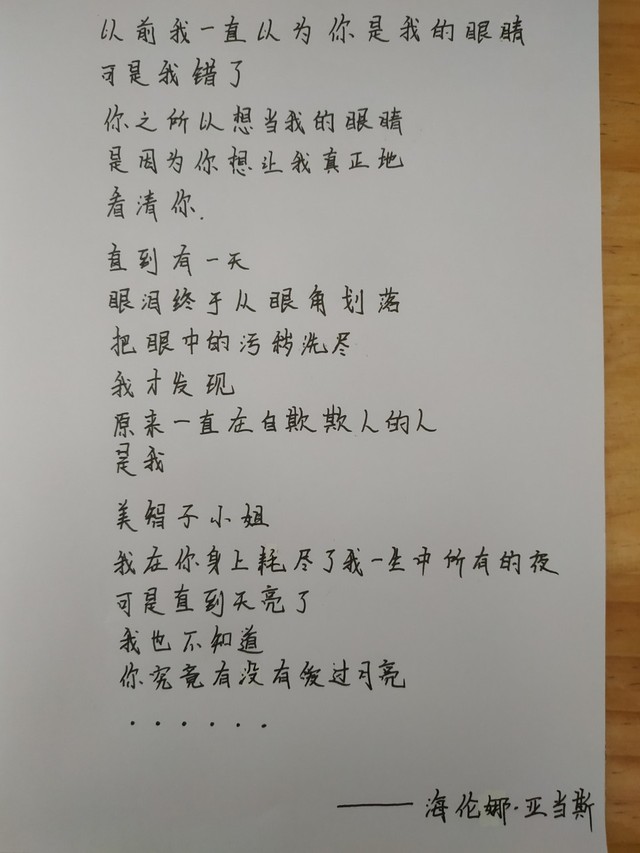 以前我一直以为你是我的眼睛
可是我错了
你之所以想当我的眼睛
是因为你想让我真正地
看清你.
直到有一天
眼泪终于从眼角划落
把眼中的污秽洗尽
我才发现
原来一直在自欺欺人的人
是我
美智子小姐
我在你身上耗尽了我一生中所有的夜
可是直到天亮了
我也不知道
你究竟有没有爱过月亮
······
——海伦娜·亚当斯